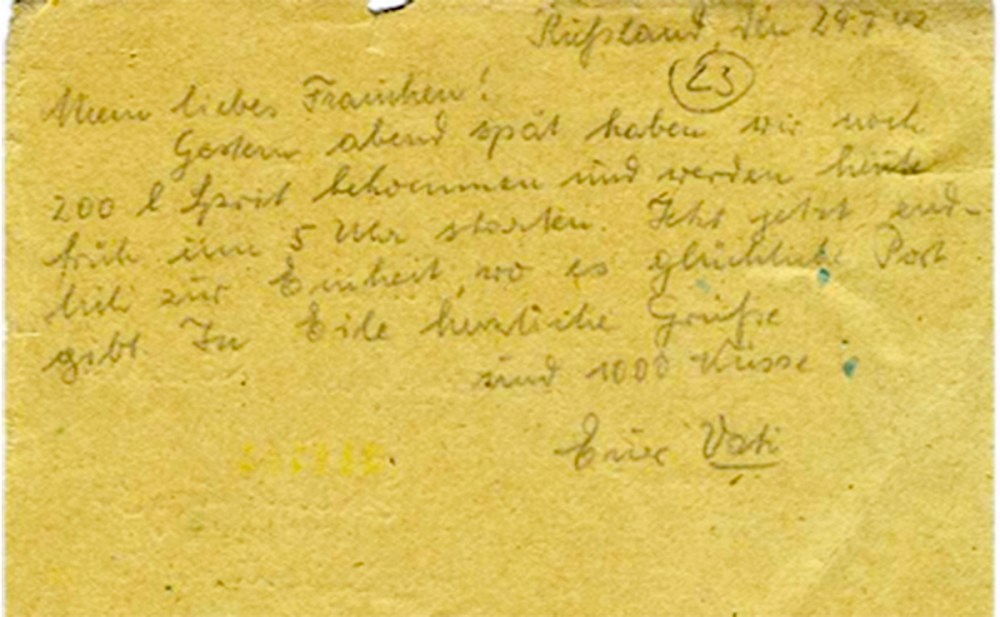 Rußland, den 29.7.42
23
Mein liebes Frauchen!
Gestern abend spät haben wir noch
200 l Sprit bekommen und werden heute
früh um 5 Uhr starten. jetzt end-
lich zur Einheit, wo es glückliche Post
gibt. In Eile herzliche Grüße
und 1000 Küsse
Euer Vati